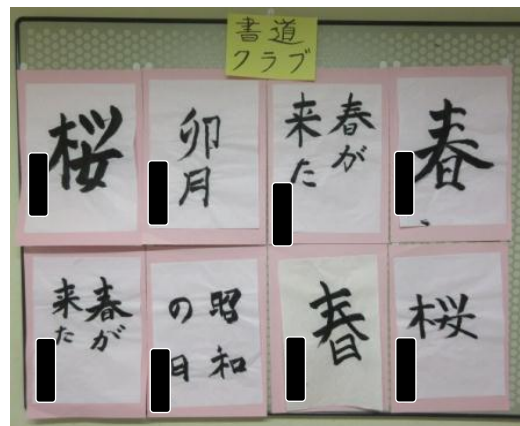 書道
クラブ
桜
卯月
春が
来た
春
春が
来た
昭和
の日
春
桜